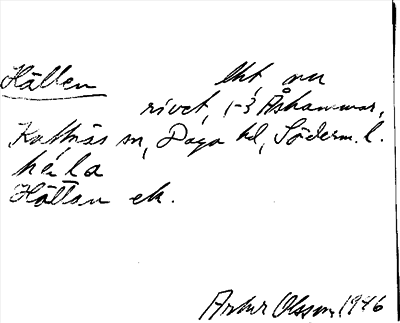 Hällen lht, nu
rivet, i Åshammar,
Kattnäs sn, Daga hd, Söderm. l.
hä̀la
Hällan ek.
Artur Olsson, 1946